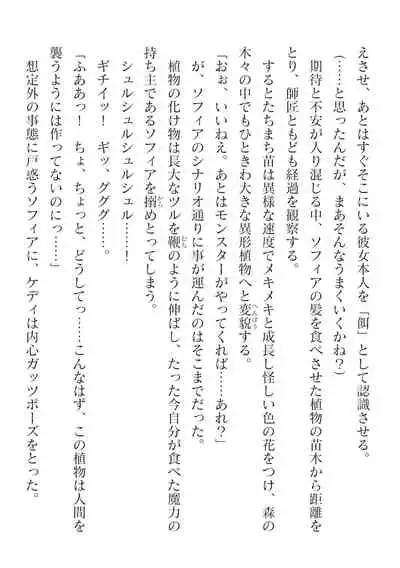 えさせ、あとはすぐそこにいる彼女本人を「餌」として認識させる。
(……と思ったんだが、まあそんなうまくいくかね?)
期待と不安が入り混じる中、ソフィアの髪を食べさせた植物の苗木から距離を
とり、師匠ともども経過を観察する。
するとたちまち苗は異様な速度でメキメキと成長し怪しい色の花をつけ、森の
木々の中でもひときわ大きな異形植物へと変貌する。
「おぉ、いいねえ。あとはモンスターがやってくれば……あれ?」
が、ソフィアのシナリオ通りに事が運んだのはそこまでだった。
植物の化け物は長大なツルを鞭のように伸ばし、たった今自分が食べた魔力の
持ち主であるソフィアを搦めとってしまう。
シュルシュルシュルシュル……!
ギチイッ! ギッ、グググ……。
「ふああっ! ちょ、ちょっと、どうしてっ……こんなはず、この植物は人間を
襲うようには作ってないのにっ……」
想定外の事態に戸惑うソフィアに、ケディは内心ガッツポーズをとった。